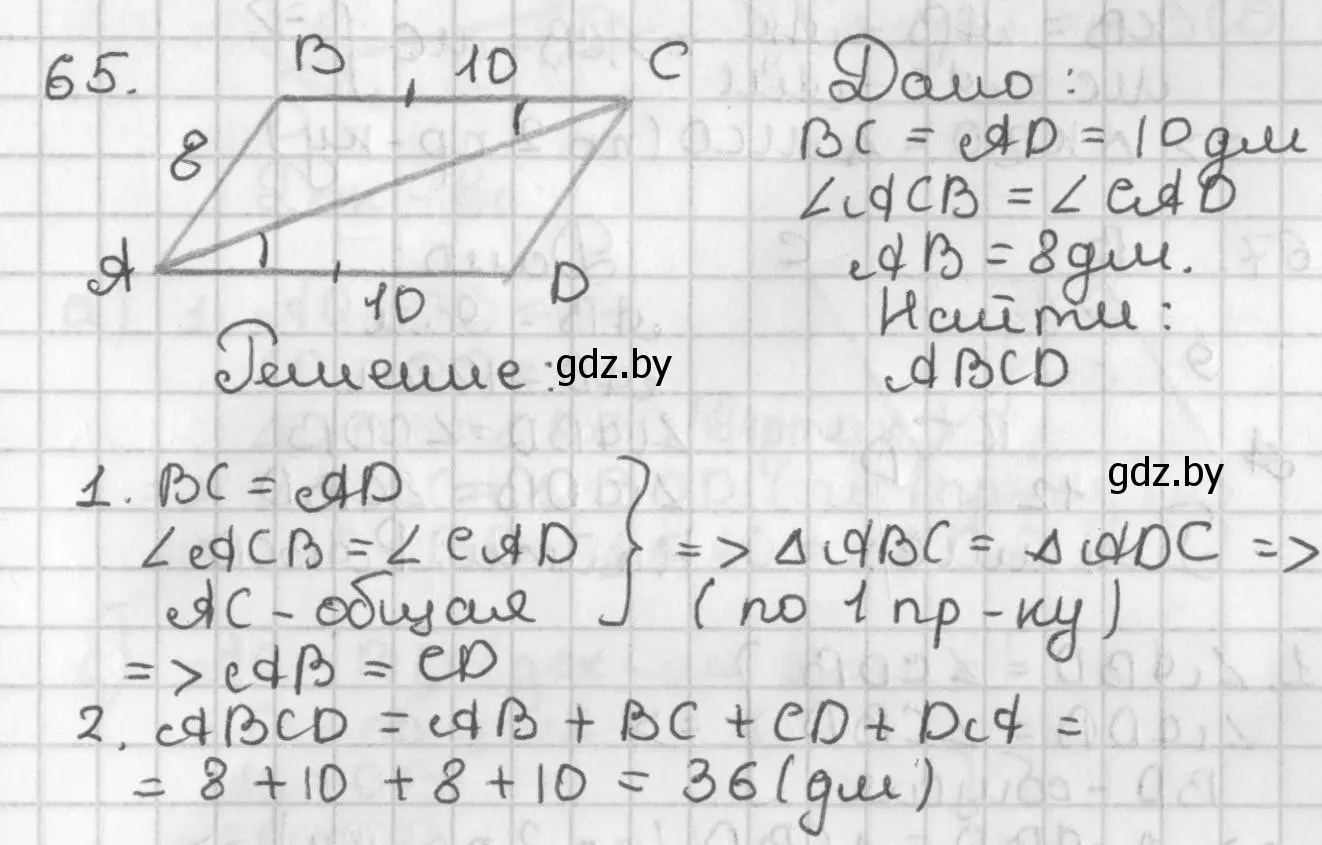 65.
B 10 C
8
A
10 D
Дано:
BC = AD = 10 дм
∠ACB = ∠CAD
AB = 8 дм.
Найти:
ABCD
Решение:
gdz.by
gdz.by
1. BC = AD
∠ACB = ∠CAD } => △ABC = △ADC =>
AC - общая (по 1 пр-ку)
=> AB = CD
2. ABCD = AB + BC + CD + DA =
= 8 + 10 + 8 + 10 = 36 (дм)